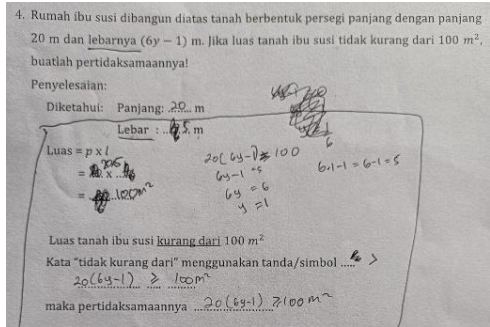 4. Rumah ibu susi dibangun diatas tanah berbentuk persegi panjang dengan panjang
20 m dan lebarnya (6y − 1) m. Jika luas tanah ibu susi tidak kurang dari 100 m²,
buatlah pertidaksamaannya!
Penyelesaian:
Diketahui: Panjang: 20 m
Lebar : 5 m
Luas = p x l
= 20 x 5
= 100m²
20(6y-1) ≥ 100
6y-1 = 5
6y = 6
y = 1
6.1-1 = 6-1 = 5
6
Luas tanah ibu susi kurang dari 100 m²
Kata "tidak kurang dari" menggunakan tanda/simbol ..... >
20(6y-1) ≥ 100m²
maka pertidaksamaannya 20(6y-1) ≥ 100 m²